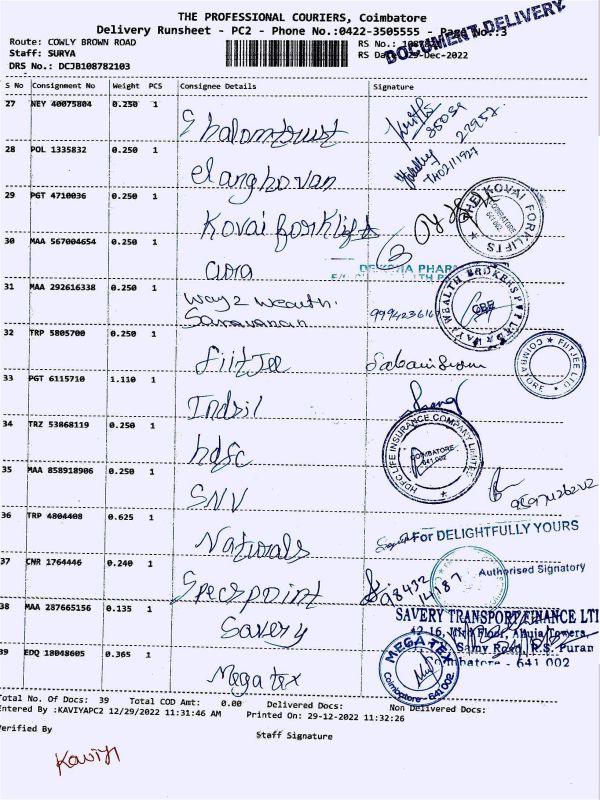 THE PROFESSIONAL COURIERS, Coimbatore
Delivery Runsheet - PC2 - Phone No.:0422-3505555 - Page No.:3
DOCUMENT DELIVERY
Route: COWLY BROWN ROAD
RS No.:
Staff: SURYA
RS Da 29-Dec-2022
DRS No.: DCJB108782103
S No Consignment No Weight PCS Consignee Details Signature
27 NEY 40075804 0.250 1 Shalomtrust
28 POL 1335832 0.250 1 elanghovan
29 PGT 4710036 0.250 1 Kovai forklifts
THE KOVAI FORKLIFTS
COIMBATORE
30 MAA 567004654 0.250 1
31 MAA 292616338 0.250 1 Way2 Wealth.
Saravanan
WAY2WEALTH BROKERS PVT LTD
CBE
32 TRP 5805700 0.250 1 fiitJee
FIITJEE LTD
33 PGT 6115710 1.110 1 Indsil
34 TRZ 53868119 0.250 1 hdfc
HDFC LIFE INSURANCE COMPANY LIMITED
COIMBATORE
641 002
35 MAA 858918906 0.250 1 SNV
36 TRP 4804408 0.625 1 Naturals
For DELIGHTFULLY YOURS
37 CNR 1764446 0.240 1 Specspoint
98432
14187
Authorised Signatory
38 MAA 287665156 0.135 1 Savery
SAVERY TRANSPORT FINANCE LT
Floor, Ahuja Towers,
Samy Road, R.S. Puram
Coimbatore - 641 002
39 EDQ 18048605 0.365 1 Megatex
MEGA TEX
Coimbatore - 641 002
Total No. Of Docs: 39 Total COD Amt: 0.00 Delivered Docs: Non Delivered Docs:
Entered By :KAVIYAPC2 12/29/2022 11:31:46 AM Printed On: 29-12-2022 11:32:26
Verified By
Staff Signature